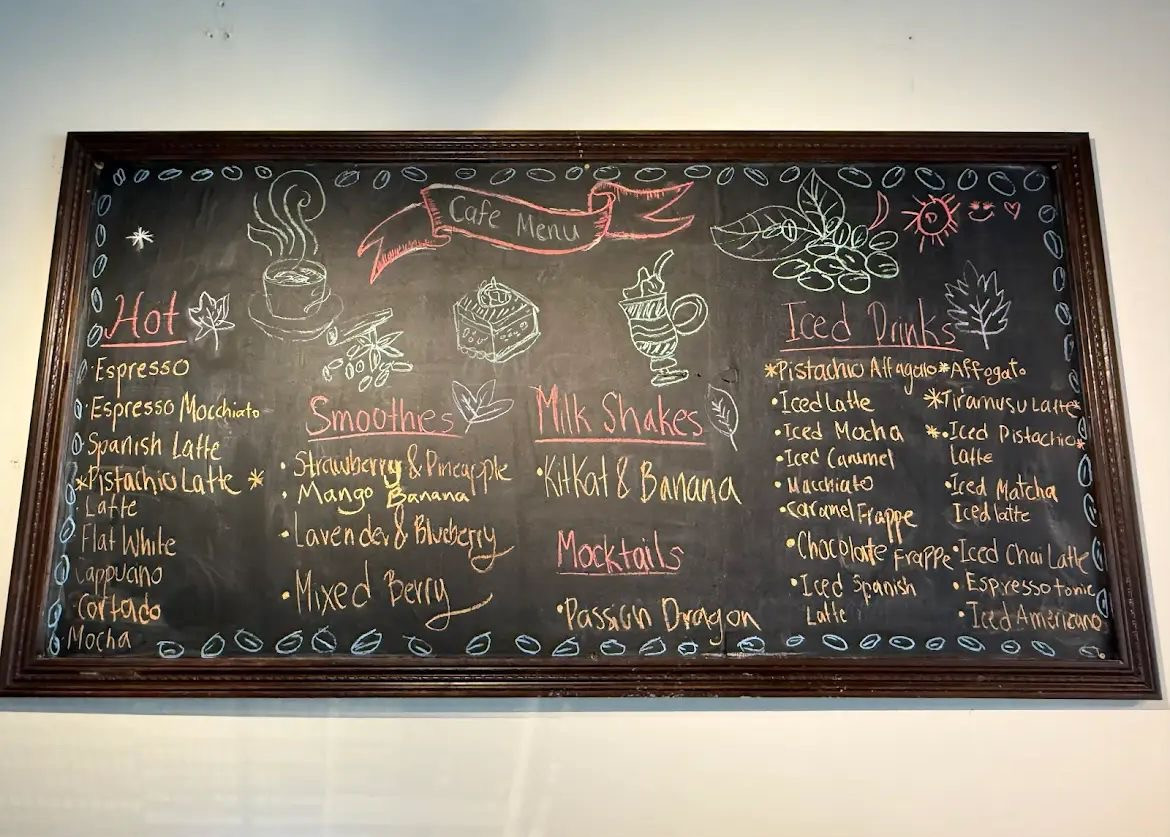 Cafe Menu
Hot
Espresso
Espresso Mocchiato
Spanish Latte
*Pistachio Latte *
Latte
Flat White
Cappuano
Cortado
Mocha
Smoothies
• Strawberry & Pineapple
• Mango Banana
• Lavender & Blueberry
• Mixed Berry
Milk Shakes
• KitKat & Banana
Mocktails
• Passion Dragon
Iced Drinks
*Pistachio Affagato
• Iced Latte
• Iced Mocha
• Iced Caramel
• Macchiato
• Caramel Frappe
• Chocolate Frappe
• Iced Spanish
Latte
*Affogato
*Tiramusu Latte*
*• Iced Pistachio*
Latte
• Iced Matcha
Iced latte
• Iced Chai Latte
• Espresso tonic
• Iced Americano